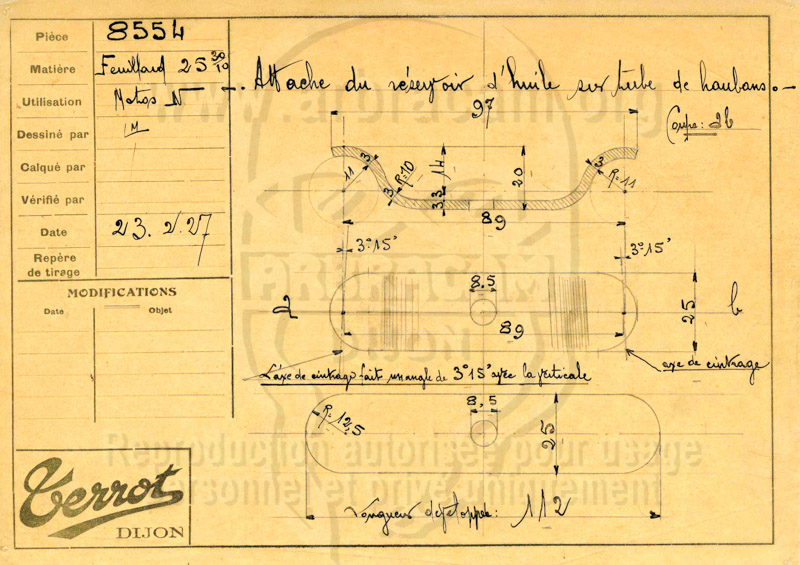 Pièce 8554
Matière Feuillard 25 30/10
Utilisation Motos N
Dessiné par
Calqué par
Vérifié par
Date 23.2.27
Repère
de tirage
MODIFICATIONS
Date Objet
Attache du réservoir d'huile sur tube de haubans.
97
Coupe: ab
3
11
R=10
14
20
3
R=11
3
3.3
89
3°15'
3°15'
8.5
a
25
b
89
axe de cintrage
L'axe de cintrage fait un angle de 3°15' avec la verticale
8,5
R=12,5
25
Longueur développée: 112
Terrot
DIJON
www.arbracam.org
ARBRACAM
DIJON
Reproduction autorisée pour usage
personnel et privé uniquement